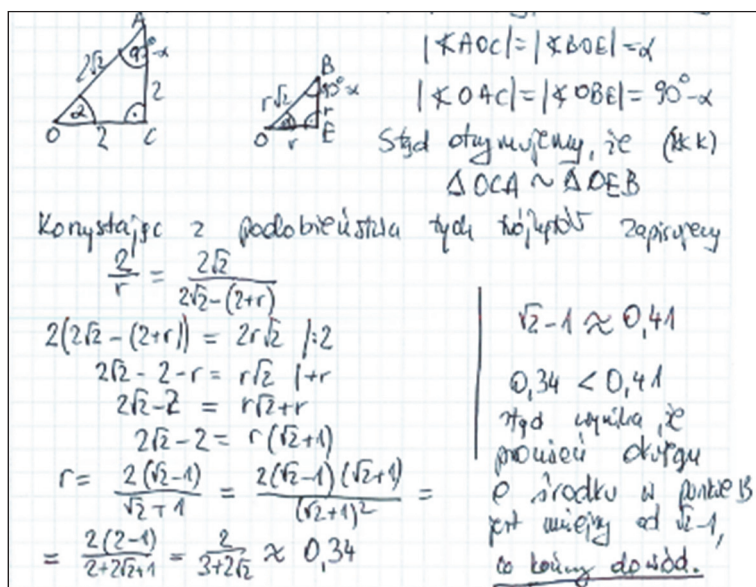 A
90°-α
2√2
2
α
O 2 C
B
90°-α
r√2
r
α
O r E
|∢AOC|=|∢BOE|=α
|∢OAC|=|∢OBE|= 90°-α
Stąd otrzymujemy, że (kkk)
△OCA ~ △OEB
Korzystając z podobieństwa tych trójkątów zapisujemy
2/r = 2√2/(2√2-(2+r))
2(2√2-(2+r)) = 2r√2 |:2
2√2-2-r = r√2 |+r
2√2-2 = r√2+r
2√2-2 = r(√2+1)
r = 2(√2-1)/(√2+1) = 2(√2-1)(√2+1)/(√2+1)² =
= 2(2-1)/(2+2√2+1) = 2/(3+2√2) ≈ 0,34
√2-1 ≈ 0,41
0,34 < 0,41
stąd wynika, że
promień okręgu
o środku w punkcie B
jest mniejszy od √2-1,
co kończy dowód.